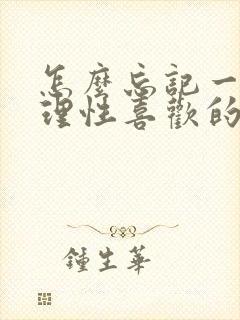 怎麼忘記一
理性喜歡的
鍾生華